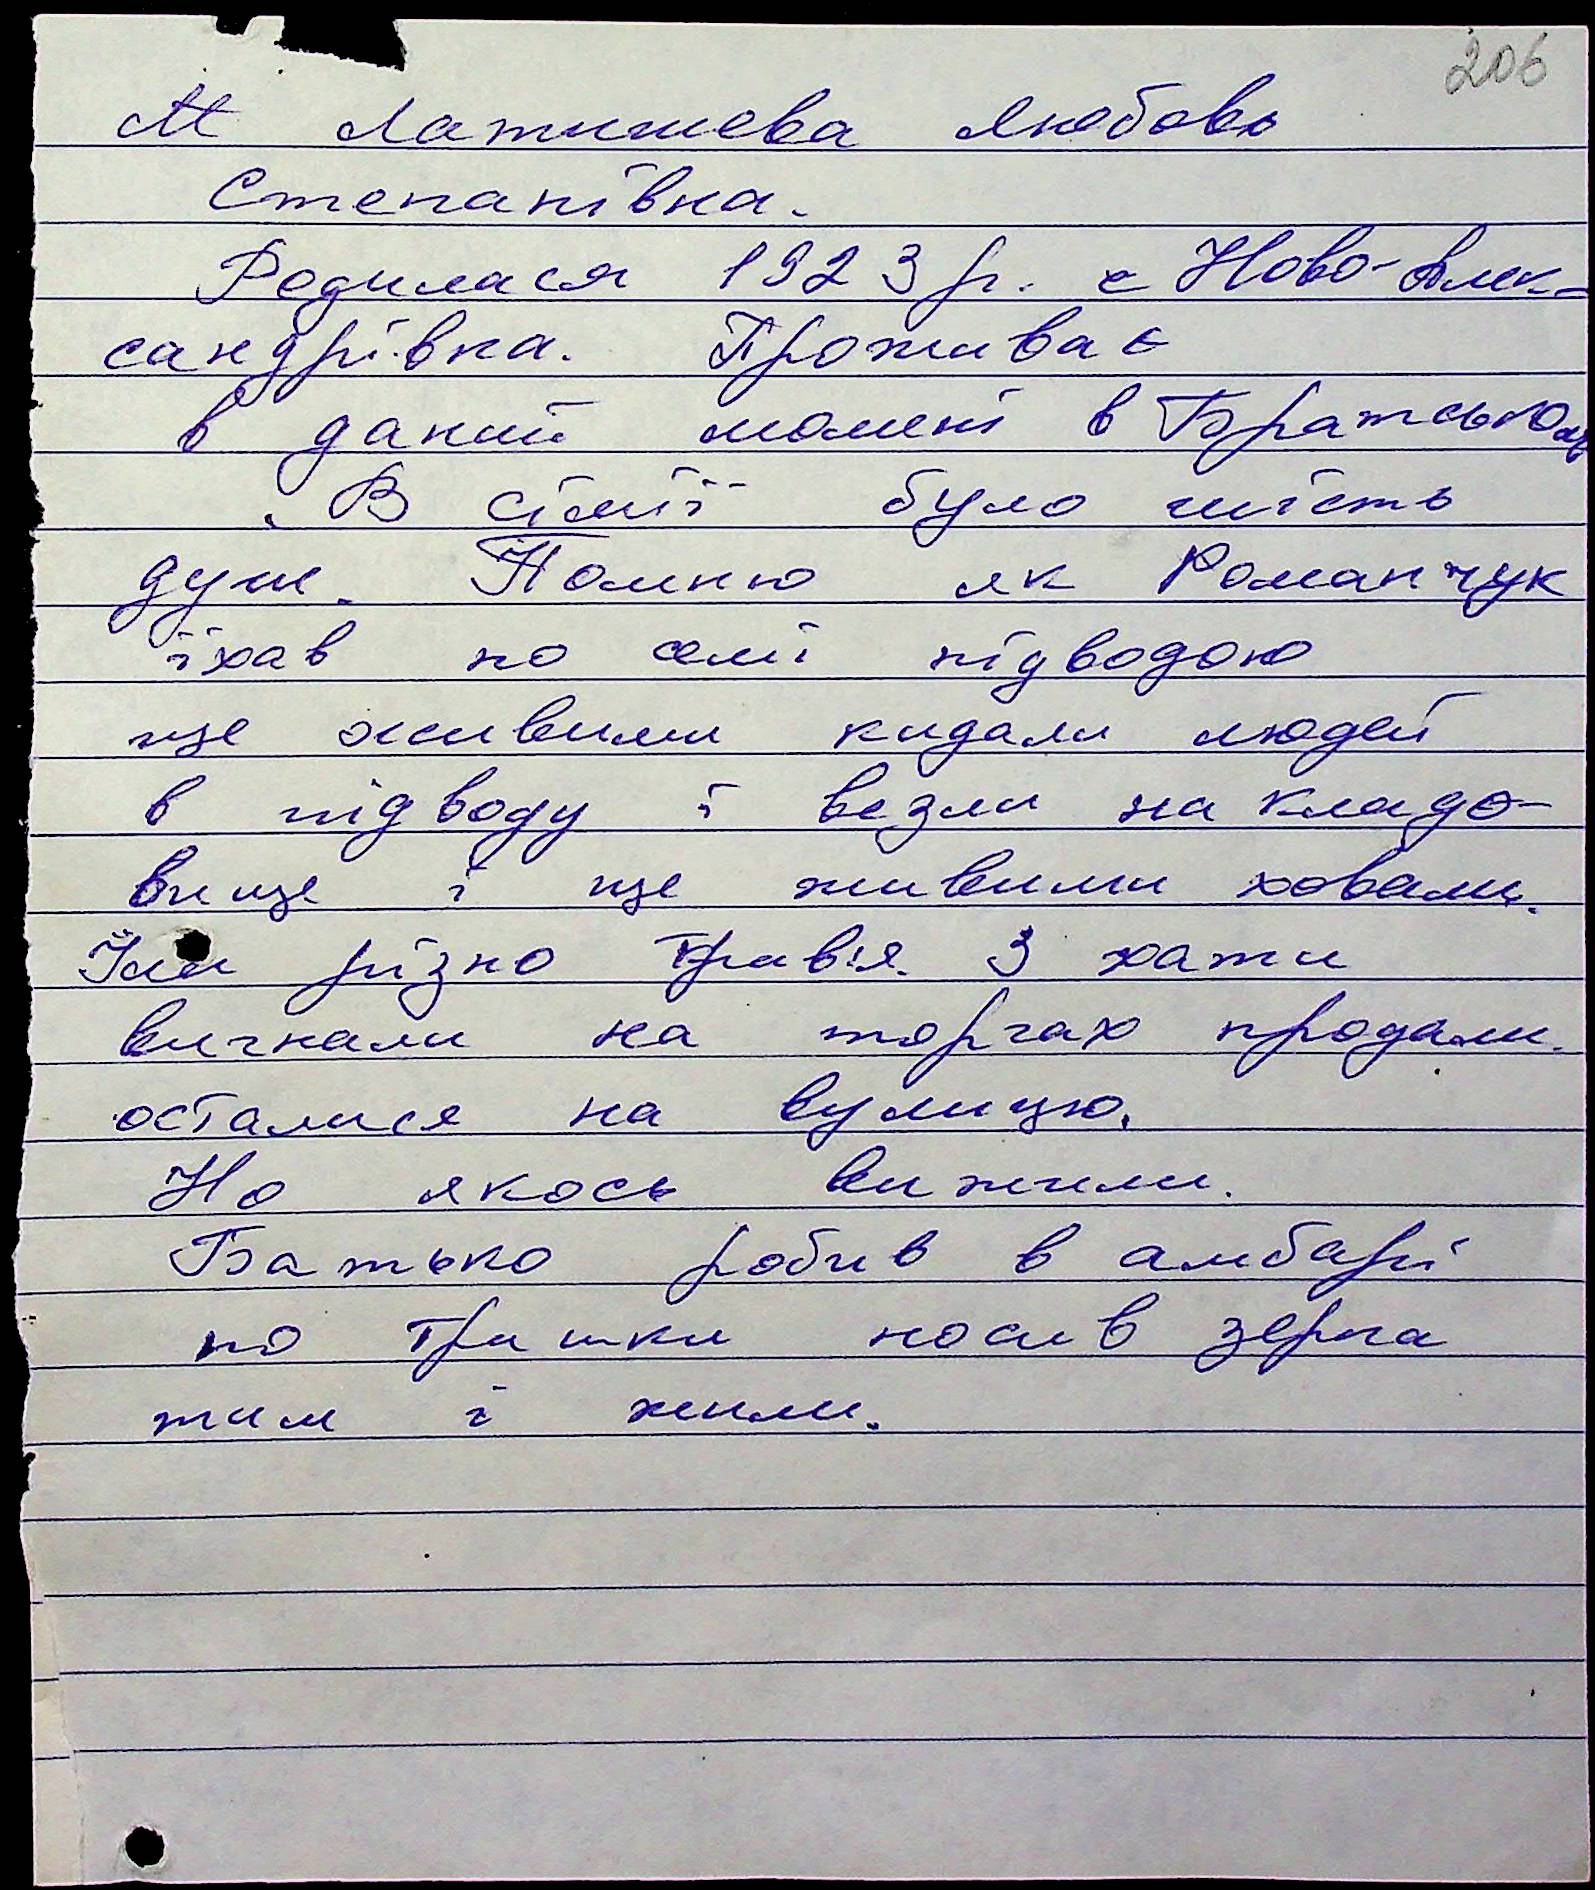 206
М Латишева Любовь
Степанівна.
Родилася 1923 р. с Ново-Алек-
сандрівка. Проживає
в даний момент в Братському
. В сімії було шість
душ. Помню як Романчук
їхав по селі підводою
ще живими кидали людей
в підводу і везли на кладо-
вище і ще живими ховали.
Їли різно травія. З хати
вигнали на торгах продали.
осталися на вулицю.
Но якось вижили.
Батько робив в амбарі
по трішки носив зерна
тим і жили.